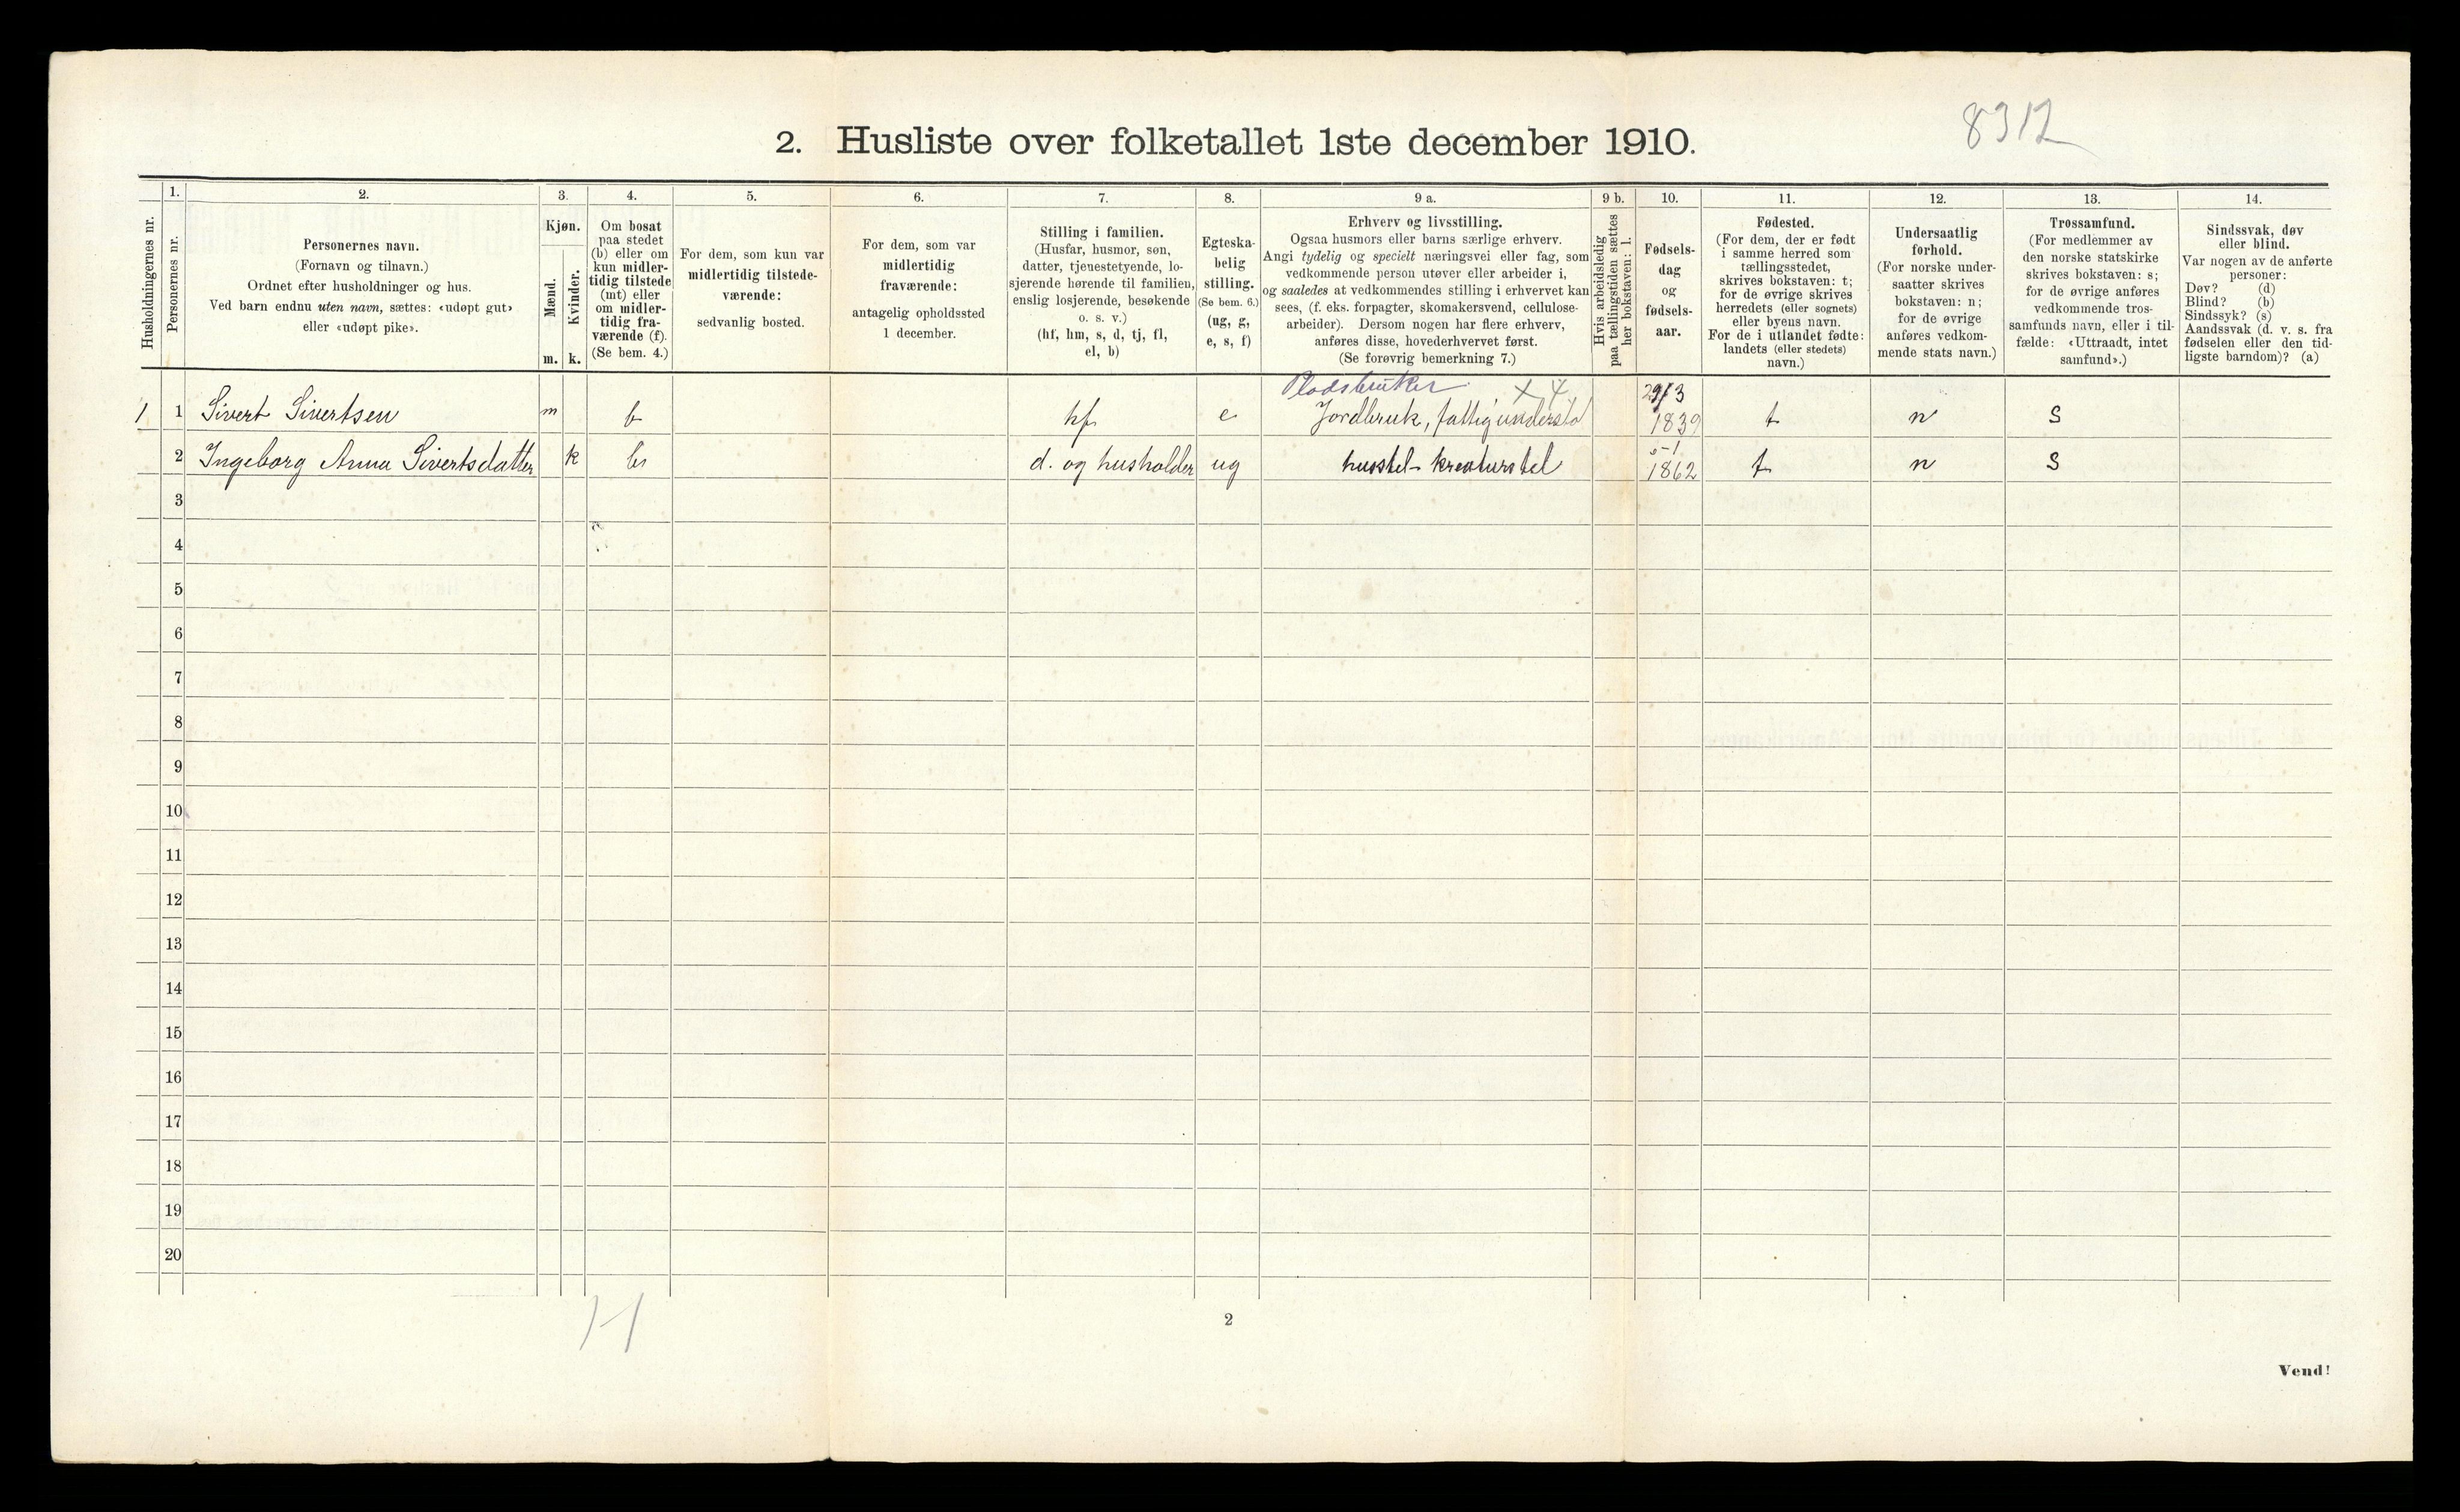 8312
2. Husliste over folketallet 1ste december 1910.
Husholdningernes nr.
1.
Personernes nr.
2.
Personernes navn.
(Fornavn og tilnavn.)
Ordnet efter husholdninger og hus.
Ved barn endnu uten navn, sættes: «udøpt gut»
eller «udøpt pike».
3.
Kjøn.
Mænd.
m.
Kvinder.
k.
4.
Om bosat
paa stedet
(b) eller om
kun midler-
tidig tilstede
(mt) eller
om midler-
tidig fra-
værende (f).
(Se bem. 4.)
5.
For dem, som kun var
midlertidig tilstede-
værende:
sedvanlig bosted.
6.
For dem, som var
midlertidig
fraværende:
antagelig opholdssted
1 december.
7.
Stilling i familien.
(Husfar, husmor, søn,
datter, tjenestetyende, lo-
sjerende hørende til familien,
enslig losjerende, besøkende
o. s. v.)
(hf, hm, s, d, tj, fl,
el, b)
8.
Egteska-
belig
stilling.
(Se bem. 6.)
(ug, g,
e, s, f)
9 a.
Erhverv og livsstilling.
Ogsaa husmors eller barns særlige erhverv.
Angi tydelig og specielt næringsvei eller fag, som
vedkommende person utøver eller arbeider i,
og saaledes at vedkommendes stilling i erhvervet kan
sees, (f. eks. forpagter, skomakersvend, cellulose-
arbeider). Dersom nogen har flere erhverv,
anføres disse, hovederhvervet først.
(Se forøvrig bemerkning 7.)
9 b.
Hvis arbeidsledig
paa tællingstiden sættes
her bokstaven: l.
10.
Fødsels-
dag
og
fødsels-
aar.
11.
Fødested.
(For dem, der er født
i samme herred som
tællingsstedet,
skrives bokstaven: t;
for de øvrige skrives
herredets (eller sognets)
eller byens navn.
For de i utlandet fødte:
landets (eller stedets)
navn.)
12.
Undersaatlig
forhold.
(For norske under-
saatter skrives
bokstaven: n;
for de øvrige
anføres vedkom-
mende stats navn.)
13.
Trossamfund.
(For medlemmer av
den norske statskirke
skrives bokstaven: s;
for de øvrige anføres
vedkommende tros-
samfunds navn, eller i til-
fælde: «Uttraadt, intet
samfund».)
14.
Sindssvak, døv
eller blind.
Var nogen av de anførte
personer:
Døv? (d)
Blind? (b)
Sindssyk? (s)
Aandssvak (d. v. s. fra
fødselen eller den tid-
ligste barndom)? (a)
Pladsbruker x 4 29/3
1 1 Sivert Sivertsen m b hf e Jordbruk, fattigunderstø 1839 t n S
5-1
2 Ingeborg Anna Sivertsdatter k b d. og husholder ug husstel- kreaturstel 1862 t n S
3
4
5
6
7
8
9
10
11
12
13
14
15
16
17
18
19
20
2
Vend!